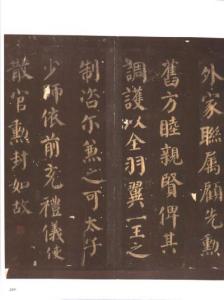 外家聯屬顧先勳
舊方睦親賢俾其
調護以全羽翼一王之
制咨尔兼之可太子
少師依前充禮儀使
散官勳封如故